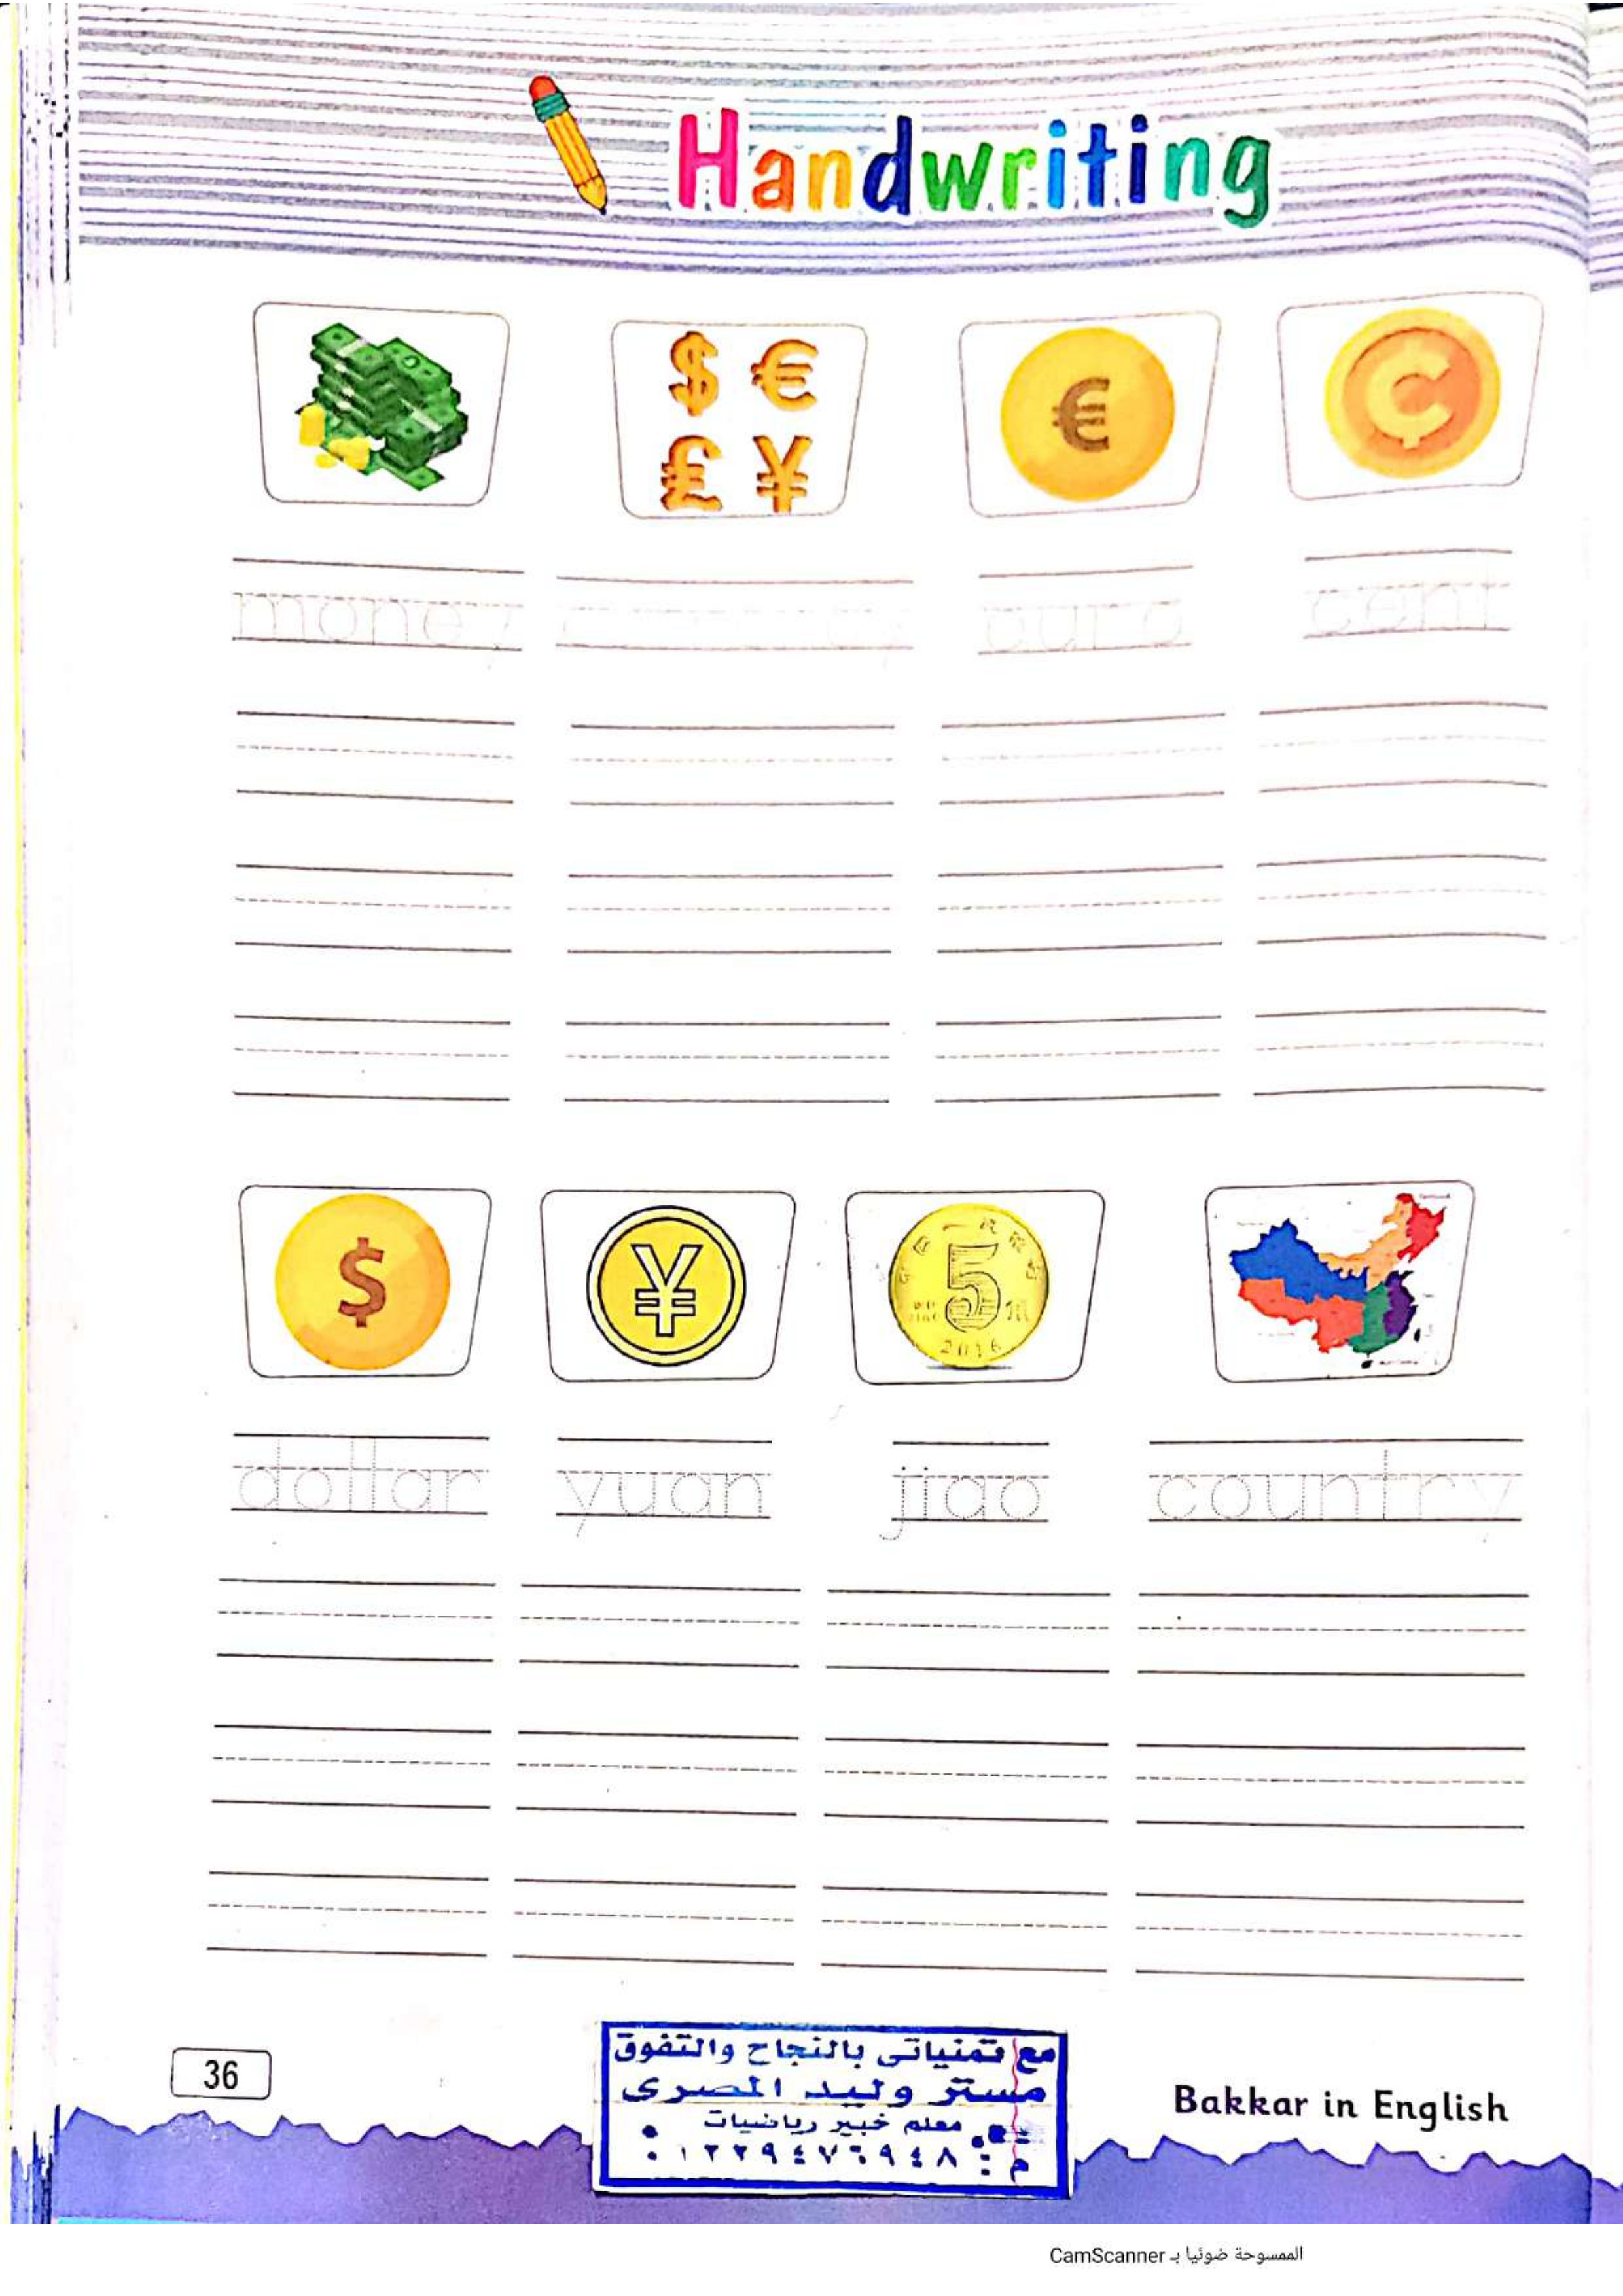 Handwriting
$ €
€
¢
£ ¥
money
cent
$
¥
5
2016
dollar yuan jiao country
36
مع تمنياتى بالنجاح والتفوق
مستر وليد المصرى
معلم خبير رياضيات
Bakkar in English
الممسوحة ضوئيا بـ CamScanner